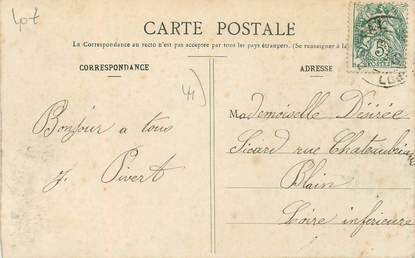 Lot
CARTE POSTALE
La Correspondance au recto n'est pas acceptée par tous les pays étrangers. (Se renseigner à la
CORRESPONDANCE
ADRESSE
Bonjour a tous
J. Pivert
Mademoiselle Désirée
Sicard rue Chateaubriand
Blain
Loire inférieure